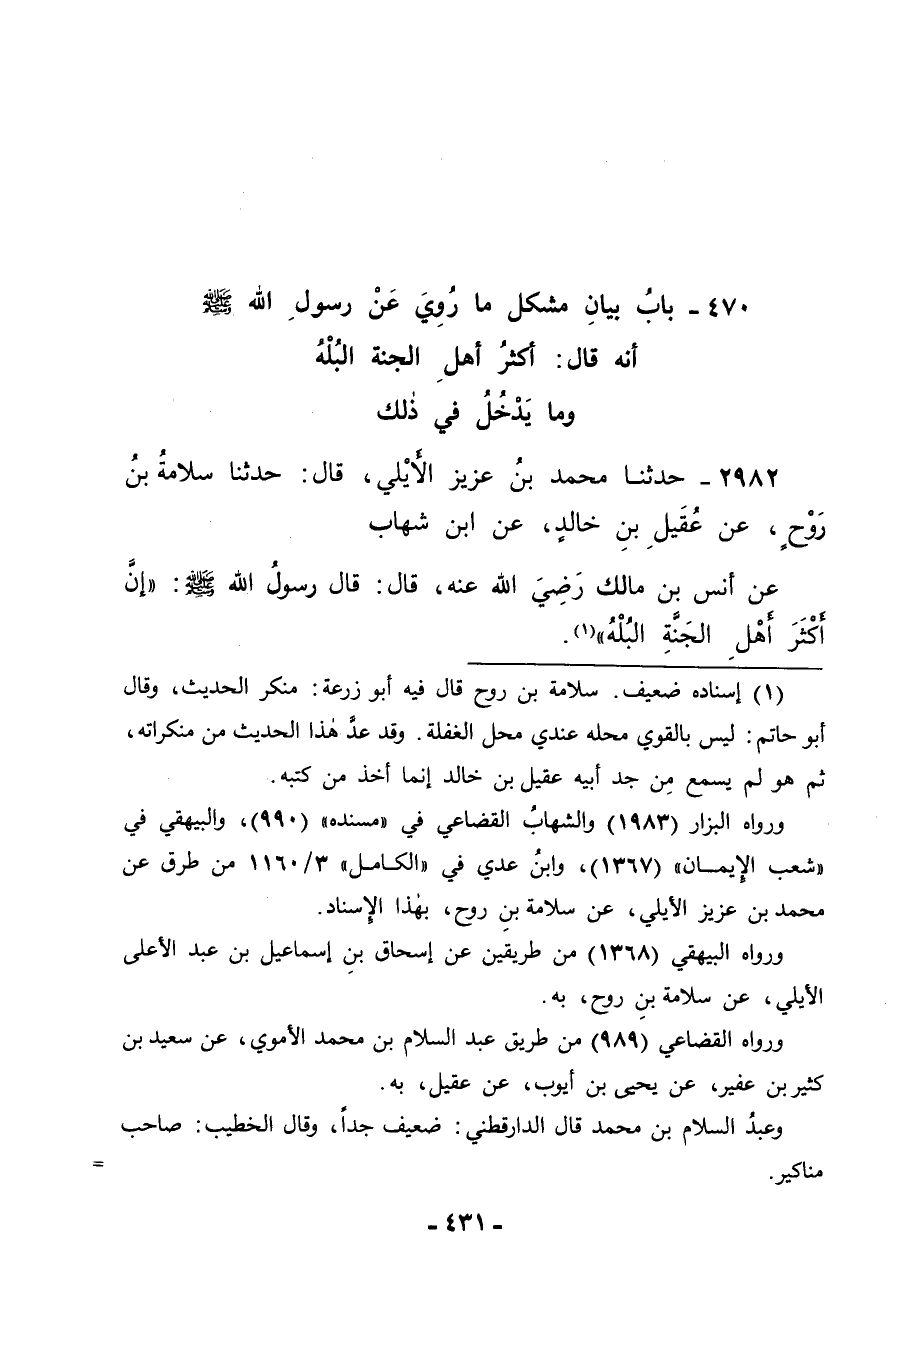 ٤٧٠ ـ بابُ بيانِ مشكل ما رُوِيَ عَنْ رسولِ الله ﷺ
أنه قال: أكثرُ أهلِ الجنة البُلْهُ
وما يَدْخُلُ في ذٰلك
٢٩٨٢ ـ حدثنا محمد بنُ عزيز الأَيْلي، قال: حدثنا سلامةُ بنُ
رَوْحٍ، عن عُقَيلِ بنِ خالدٍ، عن ابن شهاب
عن أنس بن مالك رَضِيَ الله عنه، قال: قال رسولُ الله ﷺ: «إنَّ
أَكْثَرَ أَهْلِ الجَنَّةِ البُلْهُ»(١).
(١) إسناده ضعيف. سلامة بن روح قال فيه أبو زرعة: منكر الحديث، وقال
أبو حاتم: ليس بالقوي محله عندي محل الغفلة. وقد عدَّ هٰذا الحديث من منكراته،
ثم هو لم يسمع مِن جد أبيه عقيل بن خالد إنما أخذ من كتبه.
ورواه البزار (١٩٨٣) والشهابُ القضاعي في «مسنده» (٩٩٠)، والبيهقي في
«شعب الإيمان» (١٣٦٧)، وابنُ عدي في «الكامل» ١١٦٠/٣ من طرق عن
محمد بن عزيز الأيلي، عن سلامة بنِ روح، بهٰذا الإسناد.
ورواه البيهقي (١٣٦٨) من طريقين عن إسحاق بنِ إسماعيل بن عبد الأعلى
الأيلي، عن سلامة بنِ روح، به.
ورواه القضاعي (٩٨٩) من طريق عبد السلام بن محمد الأموي، عن سعيد بن
كثير بن عفير، عن يحيى بن أيوب، عن عقيل، به.
وعبدُ السلام بن محمد قال الدارقطني: ضعيف جداً، وقال الخطيب: صاحب
مناكير. =
ـ ٤٣١ ـ